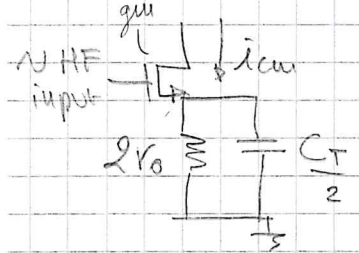 gm
~ HF
input
icm
2ro
CT
2